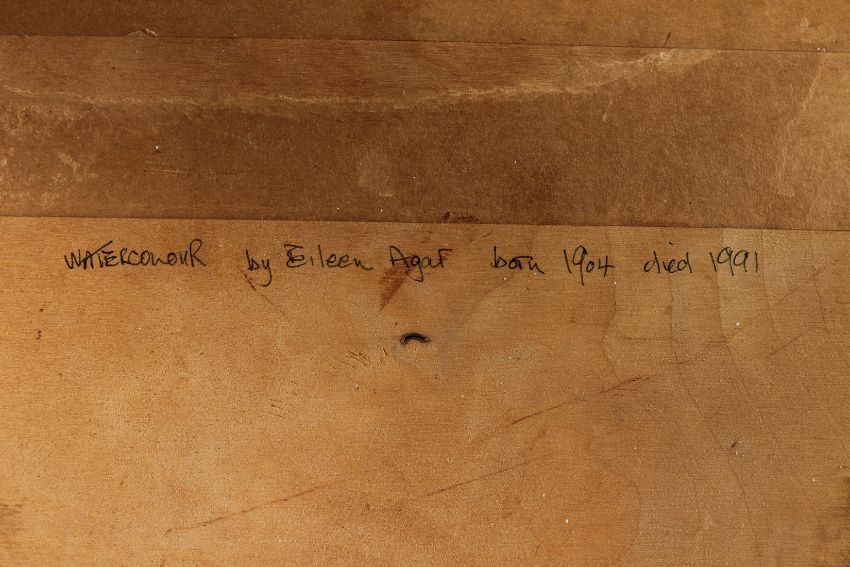 WATERCOLOUR by Eileen Agar born 1904 died 1991